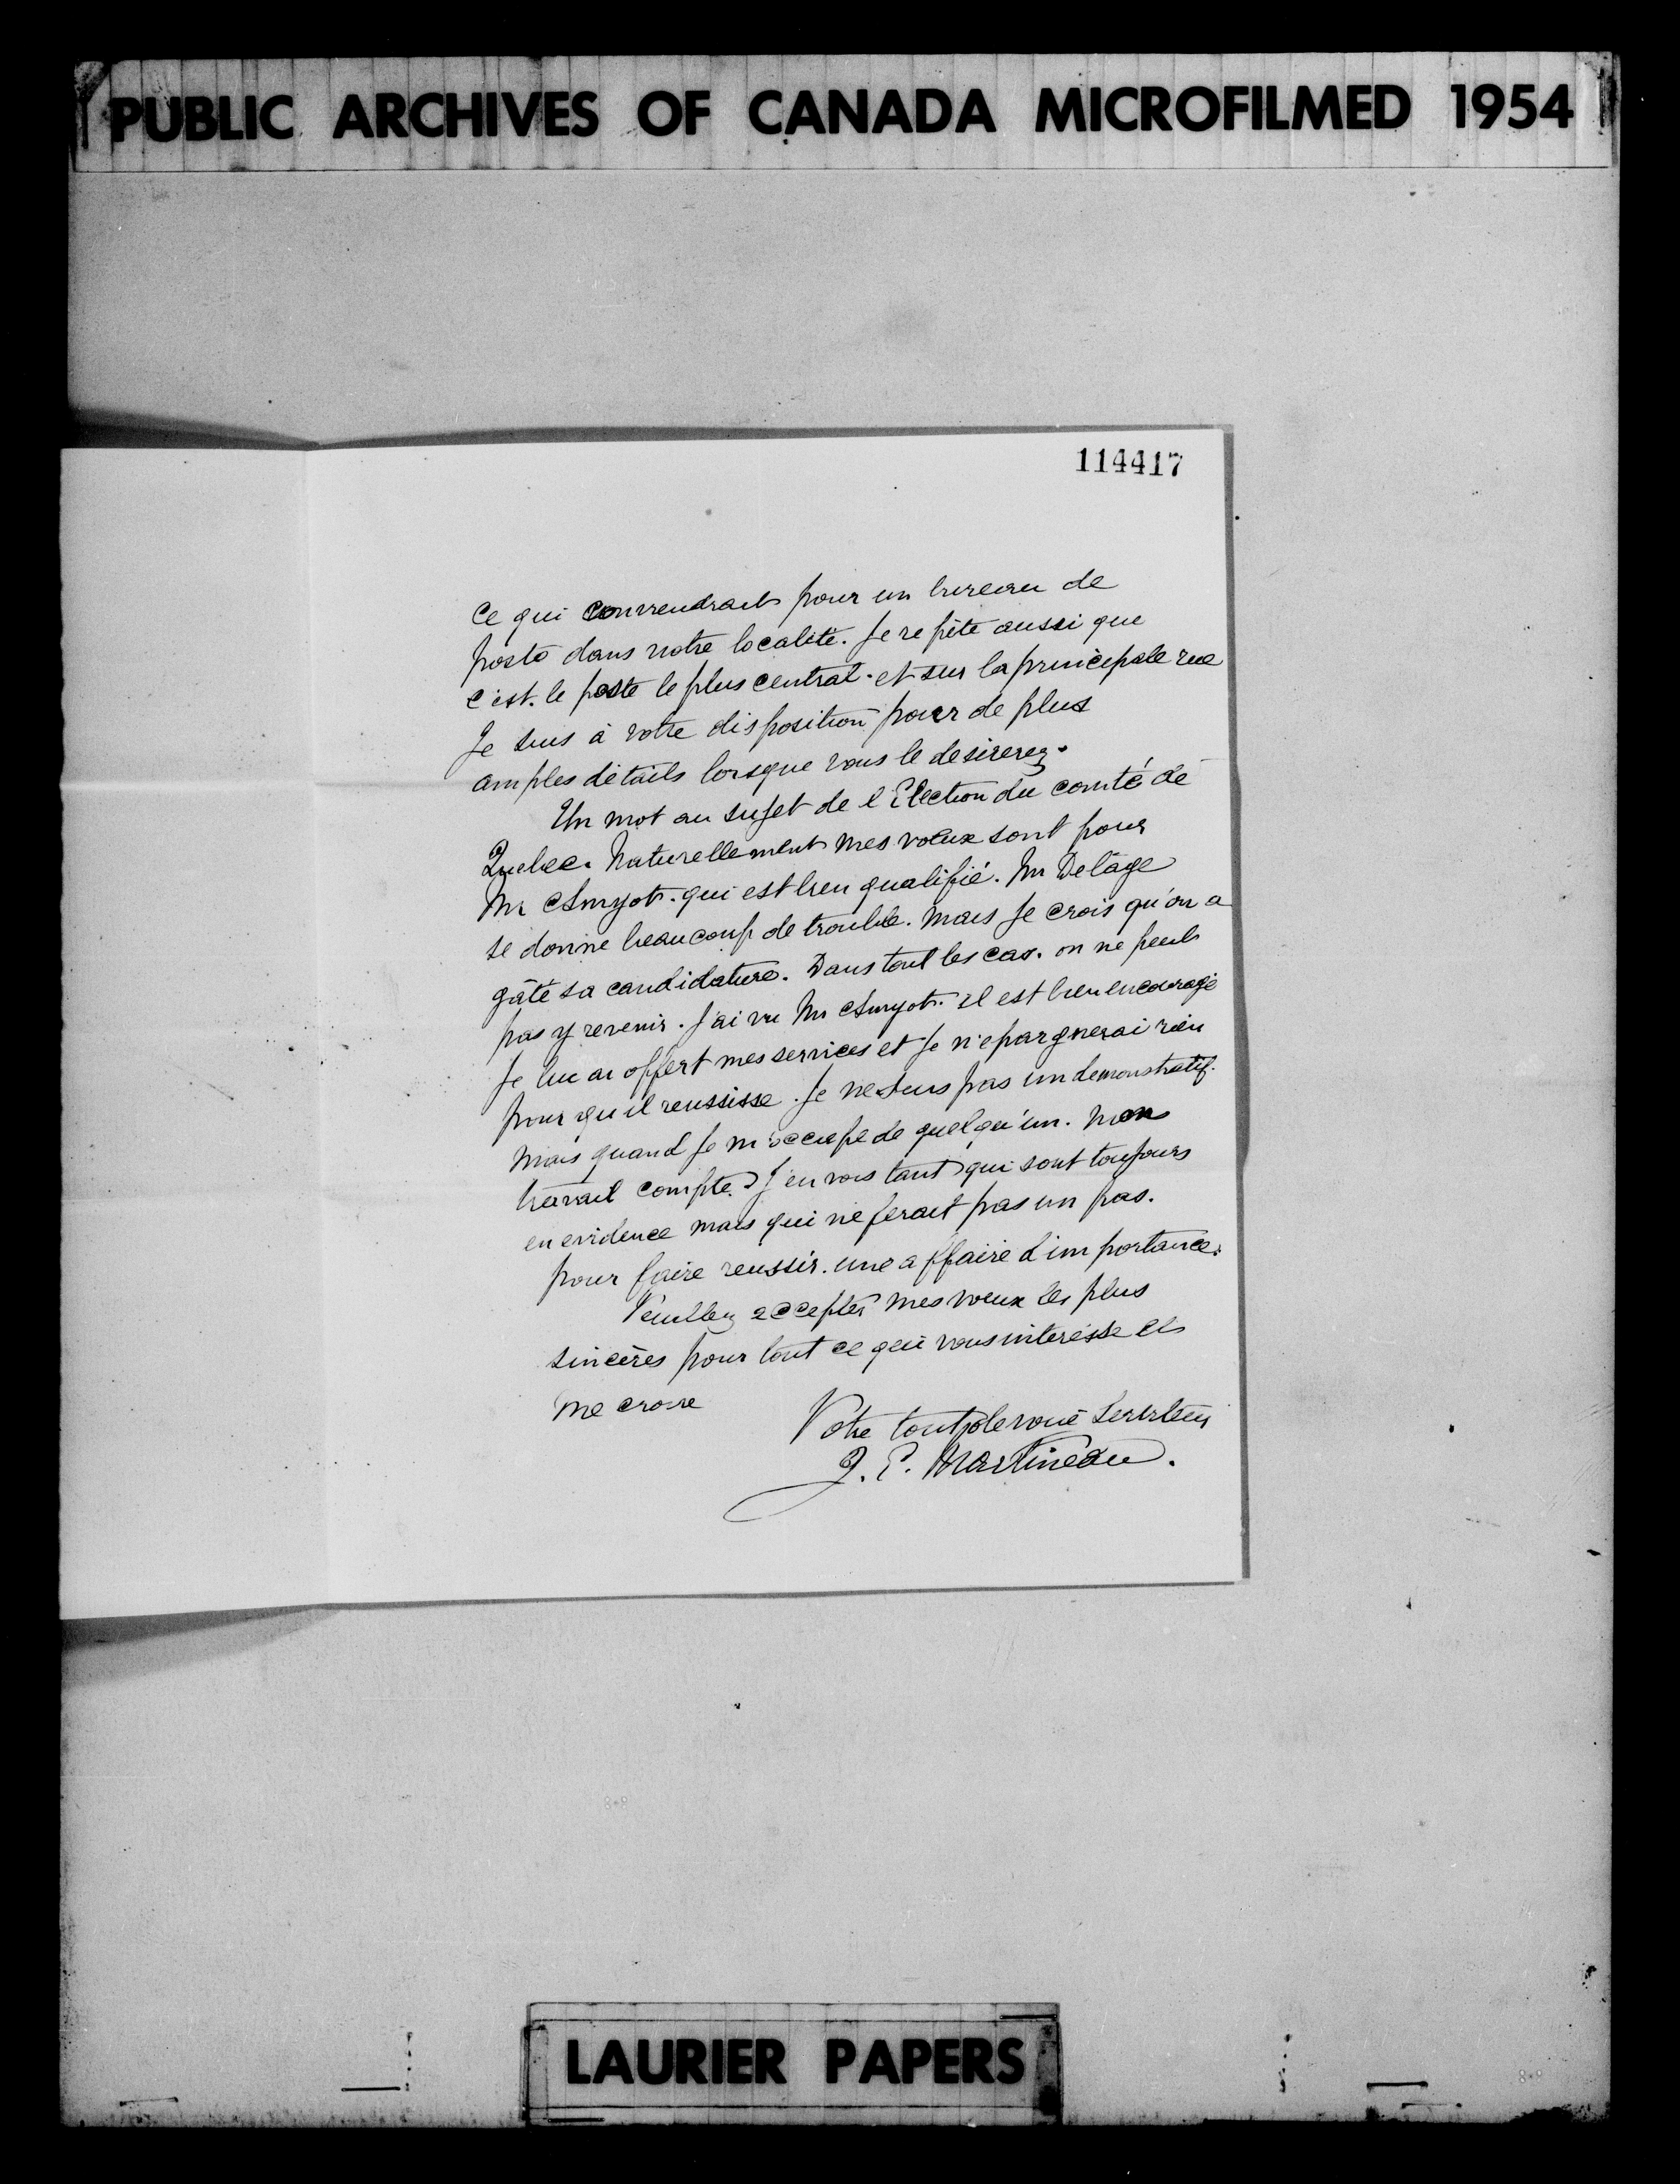 PUBLIC ARCHIVES OF CANADA MICROFILMED 1954
114417
Ce qui conviendrait pour un bureau de
poste dans notre localité. Je repète aussi que
c'est. le poste le plus central. et sur la principale rue
Je suis à votre disposition pour de plus
amples détails lorsque vous le desirerez.
Un mot au sujet de l'Election du comté de
Quebec. Naturellement mes voeux sont pour
Mr Amyot. qui est bien qualifié. Mr Delâge
se donne beaucoup de trouble. Mais Je crois qu'on a
gâté sa candidature. Dans tout les cas. on ne peut
pas y revenir. J'ai vu Mr Amyot. il est bien encouragé
Je lui ai offert mes services et Je n'epargnerai rien
pour qu'il reussisse. Je ne suis pas un demonstratif.
Mais quand Je m'occupe de quelqu'un. Mon
travail compte. J'en vois tant qui sont toujours
en evidence mais qui ne ferait pas un pas.
pour faire reussir. une affaire d'importance.
Veuillez accepter mes voeux les plus
sincères pour tout ce qui vous interesse et
me croire
Votre tout devoué Serviteur
J. E. Martineau.
LAURIER PAPERS